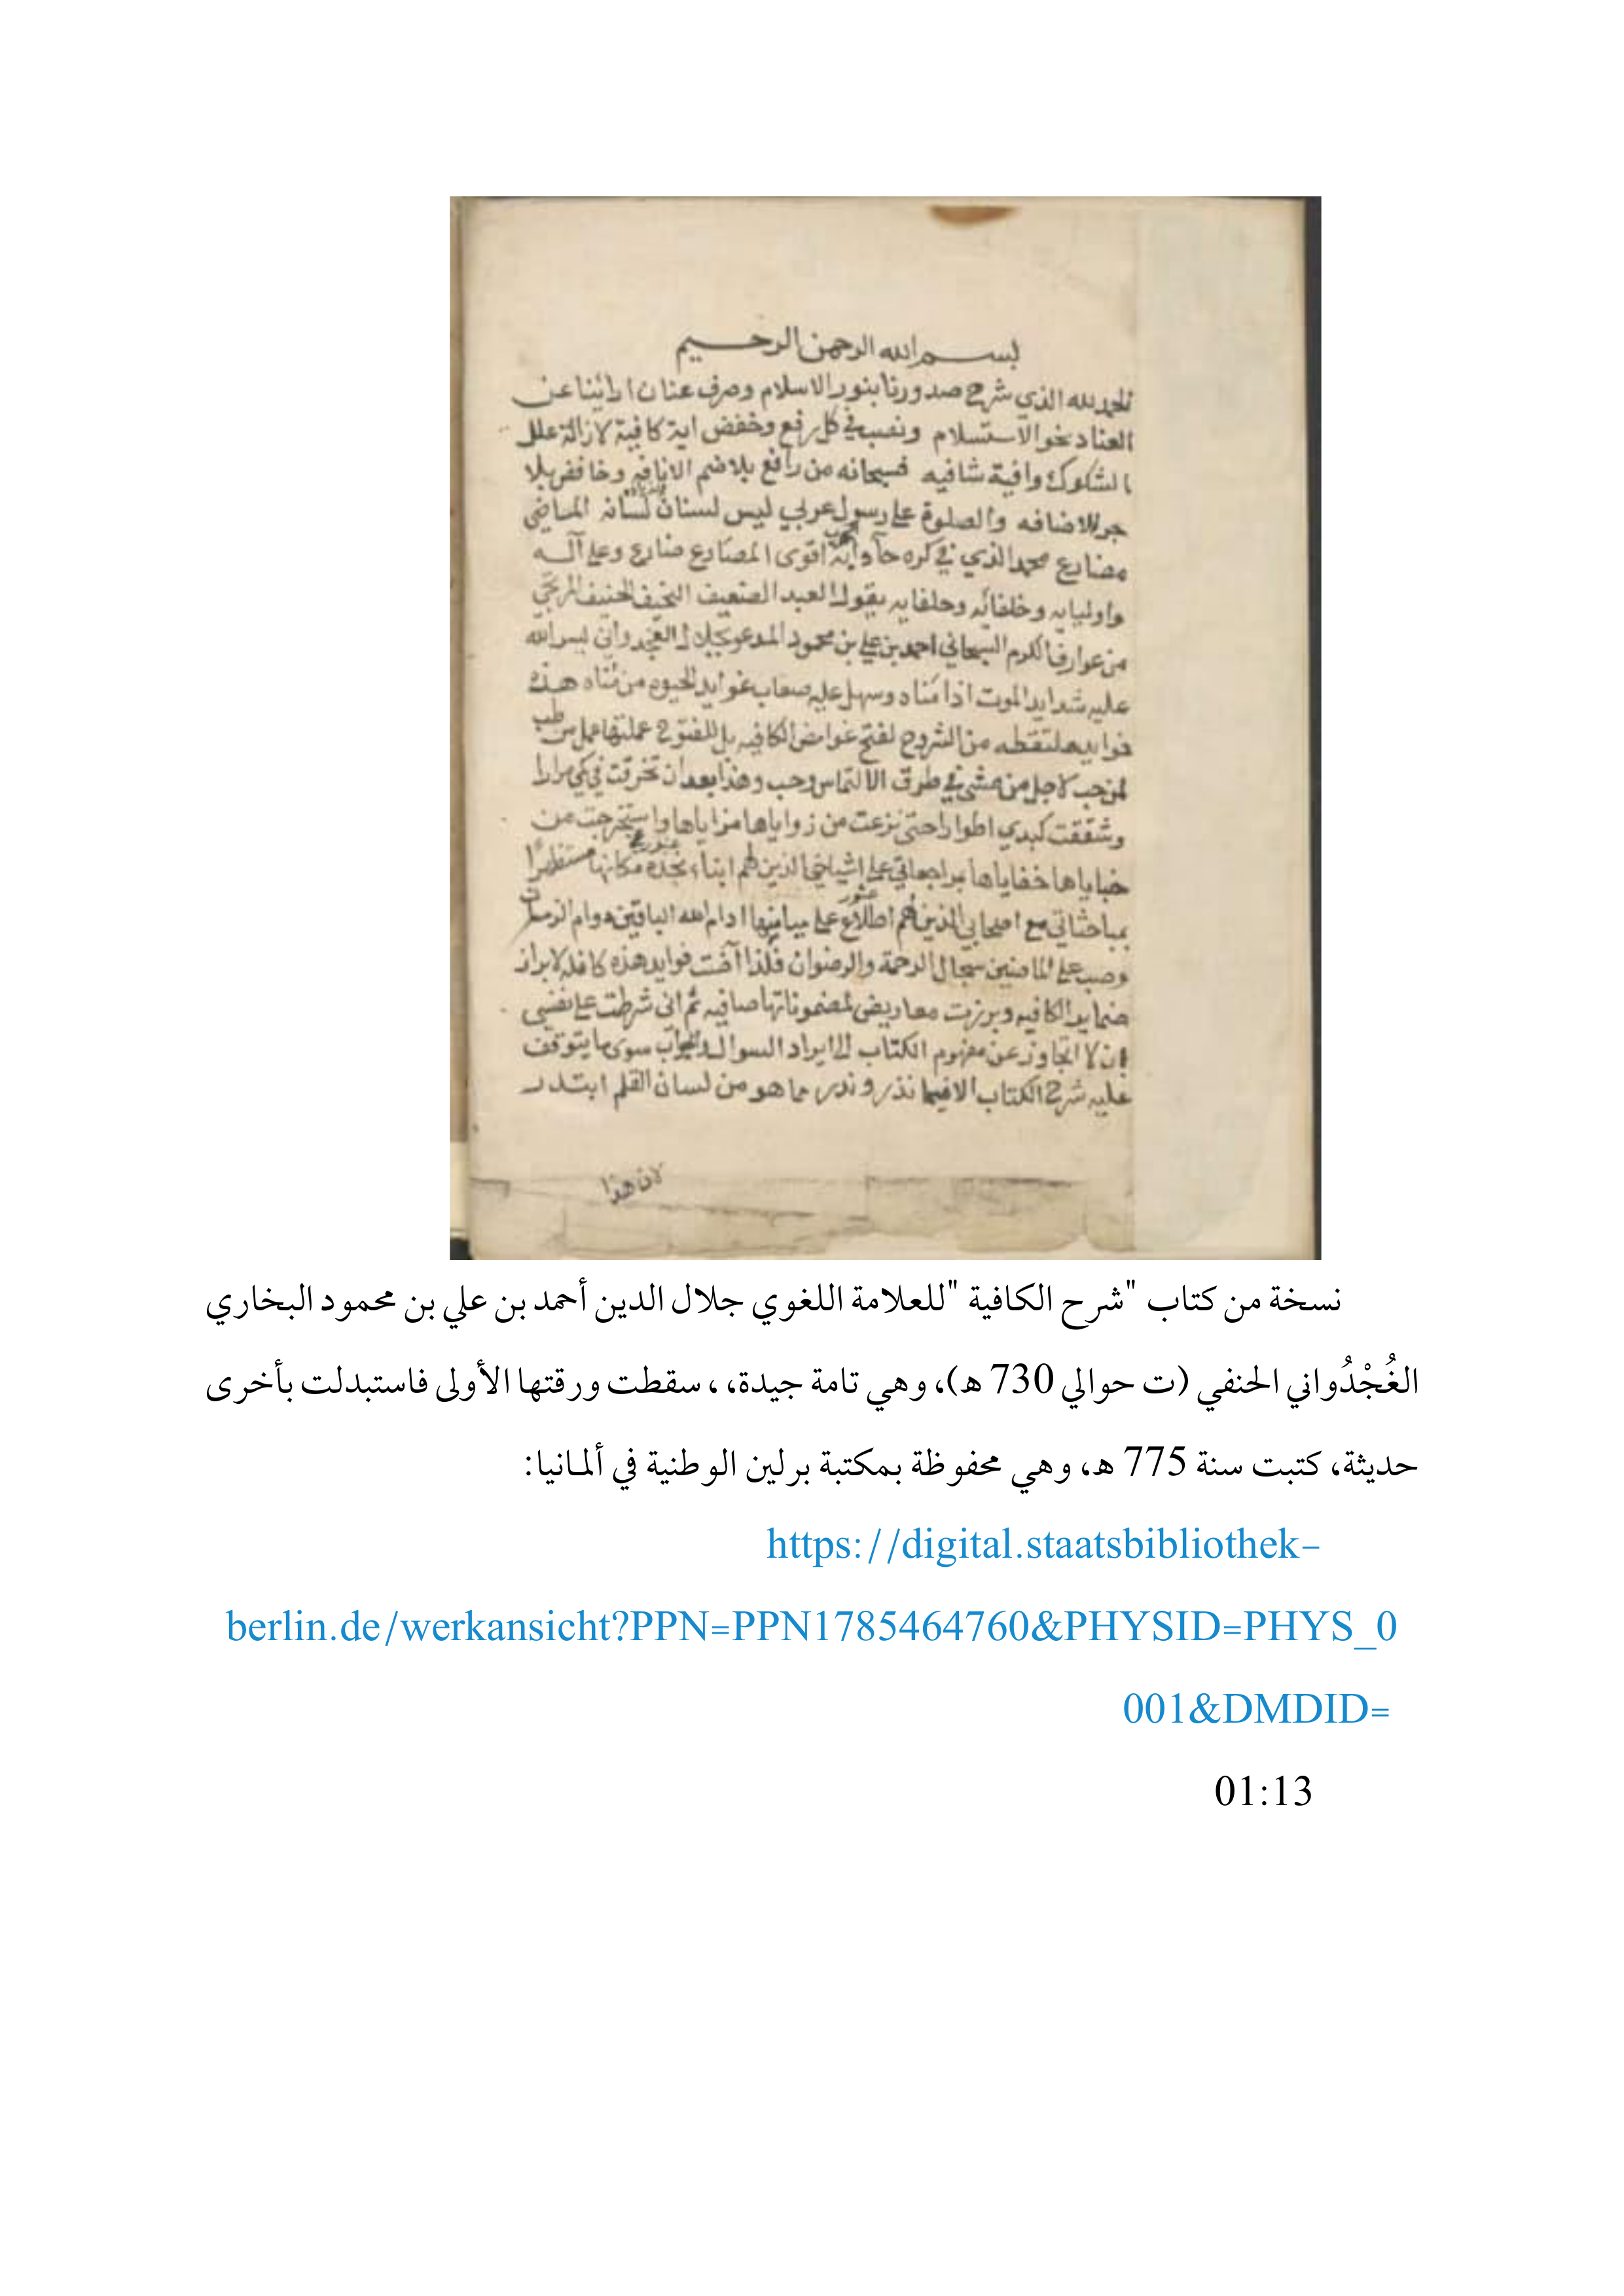 بســـم الله الرحمن الرحـــيم
الحمد لله الذي شرح صدورنا بنور الاسلام وصرف عنان ارائنا عن
العناد نحو الاستسلام ونصب في كل رفع وخفض اية كافية لازالة علل
الشكوك وافية شافيه فسبحانه من رافع بلا ضم الانافه وخافض بلا
جر الاضافه والصلوة على رسول عربي ليس لسنان لسانه الماضي
مضارع محمد الذي في كره اقوى المصارع صارع وعلى آله
واوليايه وخلفائه وحلفايه يقول العبد الضعيف النحيف الحنيف المرتجي
من عوارف الكرم السبحاني احمد بن علي بن محمود المدعو بجلال الغجدواني يسر الله
عليه شدايد الموت اذا فناه وسهل عليه صعاب الحيوه من هذه
فوايد ملتقطه من الشروح لفتح غوامض الكافيه بل للفتوح عملتها عمل من طب
لمن حب لاجل من مشى في طرق الالتماس وحب وهذا بعد ان مرارا
وشققت كبدي اطوارا حتى نزعت من زواياها مزاياها واستخرجت من
خباياها خفاياها مراجعاتي على اشياخي الذين لهم ابناء بجده مكانها مستظهرا
بمباحثاتي مع اصحابي الذين لهم اطلاع على ادام الله الباقين دوام الزمان
وصب على الماضين سجال الرحمة والرضوان فوايد هذه كافله لابراز
الكافيه وبرزت لمضموناتها صافيه ثم اني شرطت على نفسي
ان لا اتجاوز عن مفهوم الكتاب الى ايراد السوال والجواب سوى ما يتوقف
عليه شرح الكتاب الا فيما نذر وندر مما هو من لسان القلم ابتدر
لان هذا
نسخة من كتاب "شرح الكافية "للعلامة اللغوي جلال الدين أحمد بن علي بن محمود البخاري
الغُجْدُواني الحنفي (ت حوالي 730 هـ)، وهي تامة جيدة،، سقطت ورقتها الأولى فاستبدلت بأخرى
حديثة، كتبت سنة 775 هـ، وهي محفوظة بمكتبة برلين الوطنية في ألمانيا:
https://digital.staatsbibliothek-
berlin.de/werkansicht?PPN=PPN1785464760&PHYSID=PHYS_0
001&DMDID=
01:13